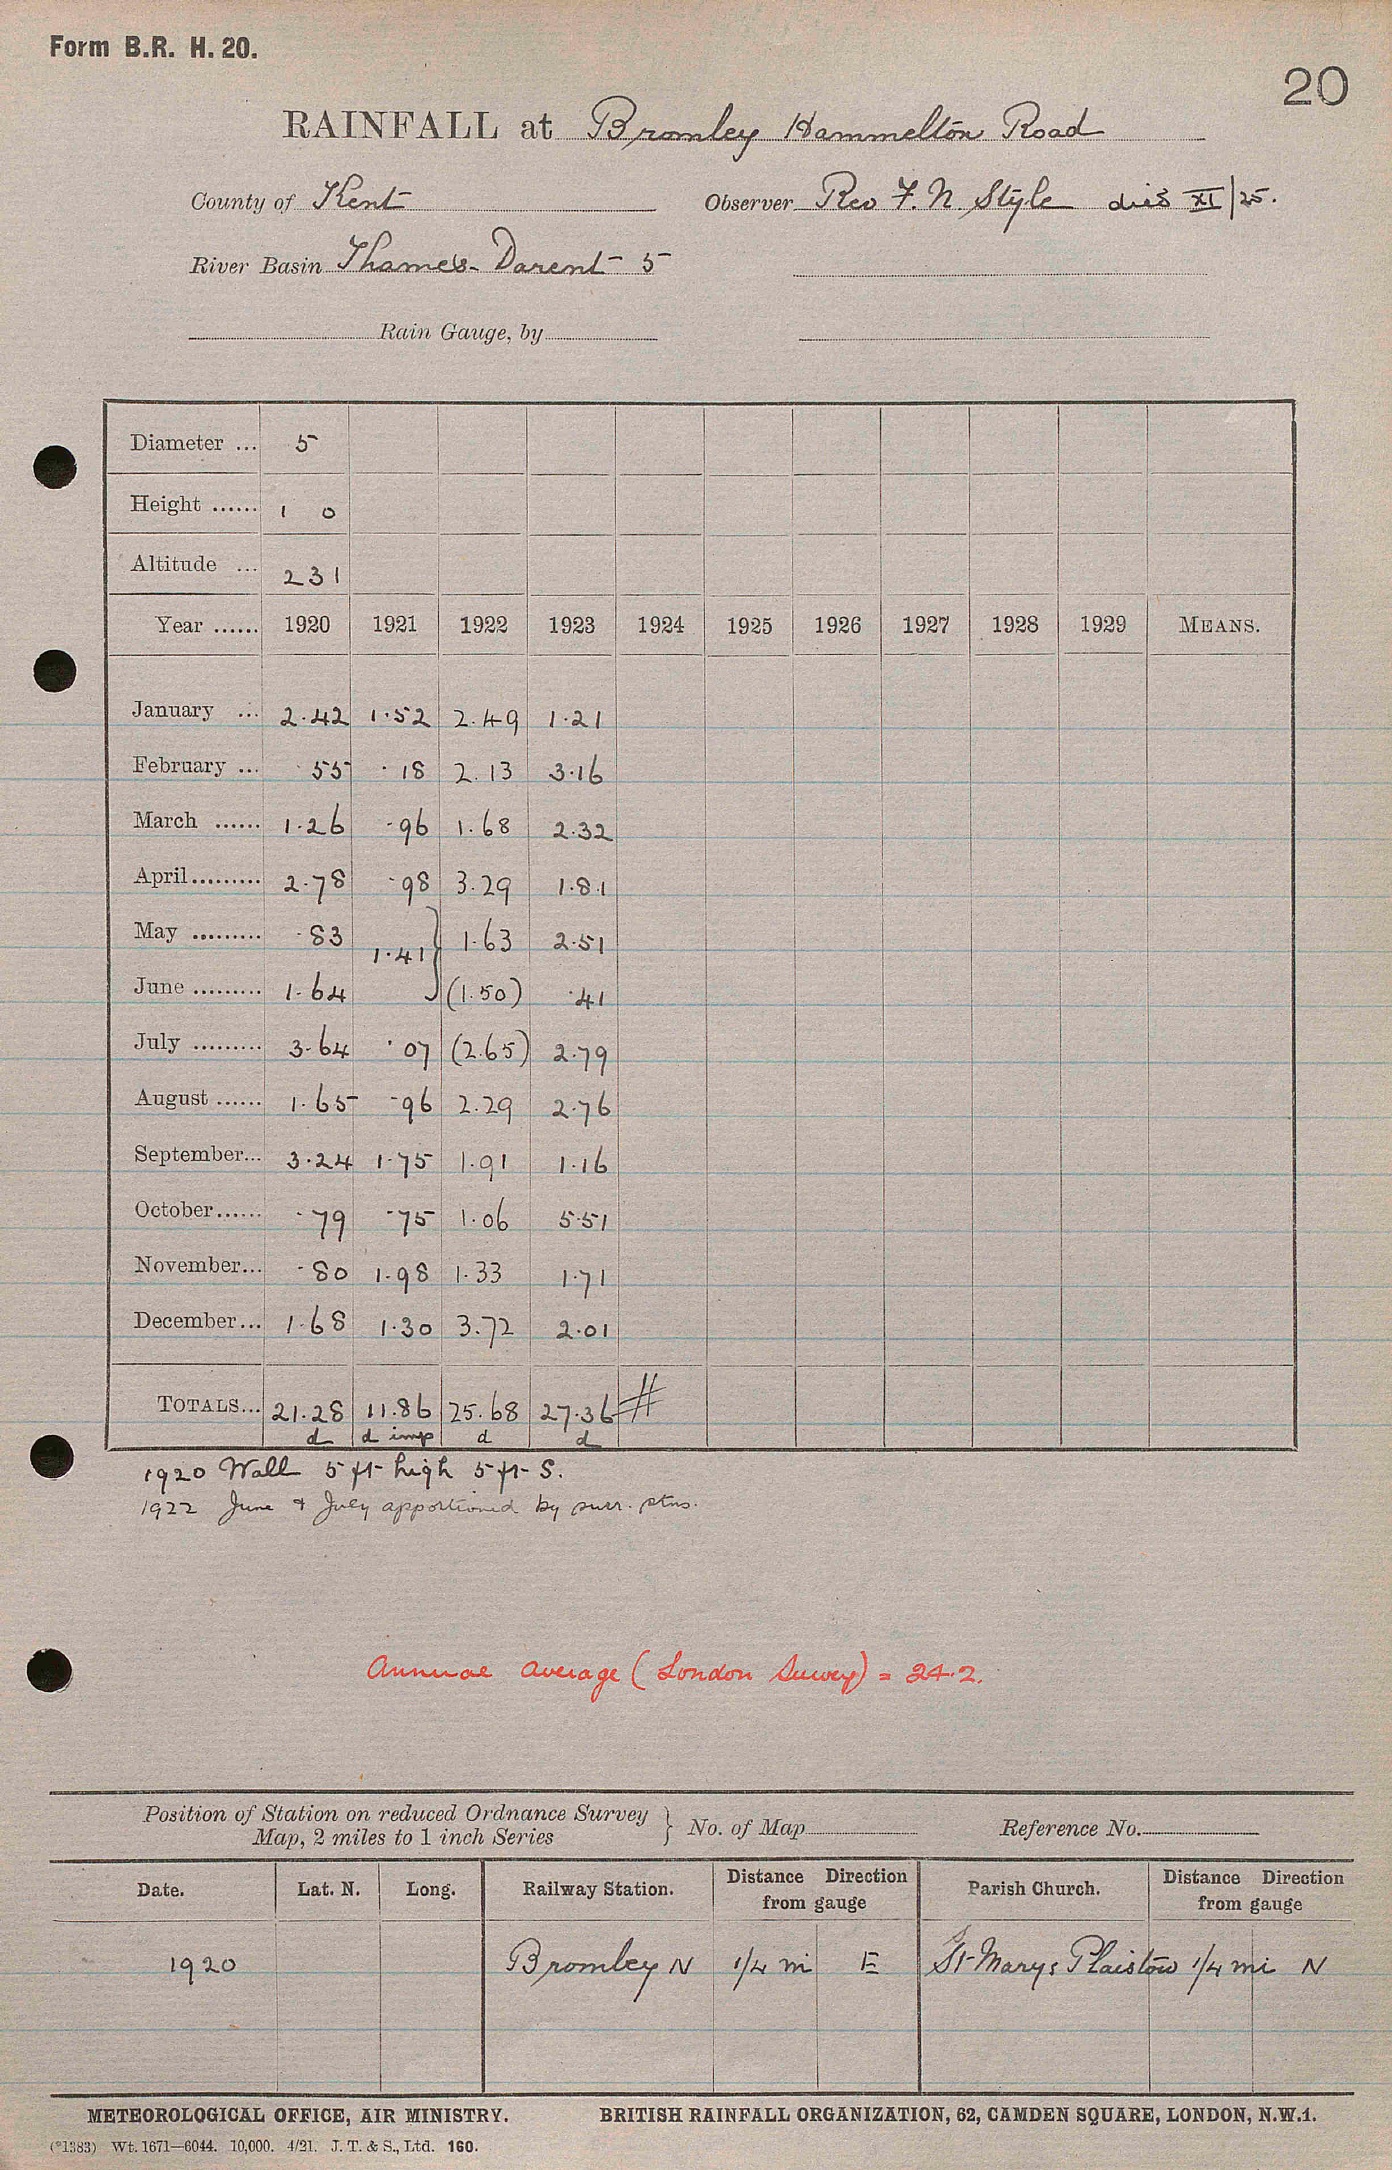 Form B.R. H. 20.
20
RAINFALL at Bromley Hammelton Road
County of Kent Observer Rev F. N. Style died XI/25.
River Basin Thames-Darent 5
Rain Gauge, by
Diameter ... 5
Height ...... 1 0
Altitude ... 231
Year ...... 1920 1921 1922 1923 1924 1925 1926 1927 1928 1929 MEANS.
January ... 2.42 1.52 2.49 1.21
February ... .55 .18 2.13 3.16
March ...... 1.26 .96 1.68 2.32
April......... 2.78 .98 3.29 1.81
May ......... .83 1.41 } 1.63 2.51
June ......... 1.64 (1.50) .41
July ......... 3.64 .07 (2.65) 2.79
August ...... 1.65 .96 2.29 2.76
September... 3.24 1.75 1.91 1.16
October...... .79 .75 1.06 5.51
November... .80 1.98 1.33 1.71
December... 1.68 1.30 3.72 2.01
TOTALS... 21.28 11.86 25.68 27.36 #
d d imp d d
1920 Wall 5 ft high 5 ft S.
1922 June & July apportioned by surr. stns.
Annual average (London Survey) = 24.2.
Position of Station on reduced Ordnance Survey
Map, 2 miles to 1 inch Series } No. of Map Reference No.
Date. Lat. N. Long. Railway Station. Distance Direction from gauge Parish Church. Distance Direction from gauge
1920 Bromley N 1/4 mi E St Marys Plaistow 1/4 mi N
METEOROLOGICAL OFFICE, AIR MINISTRY. BRITISH RAINFALL ORGANIZATION, 62, CAMDEN SQUARE, LONDON, N.W.1.
(*1383) Wt. 1671—6044. 10,000. 4/21. J. T. & S., Ltd. 160.